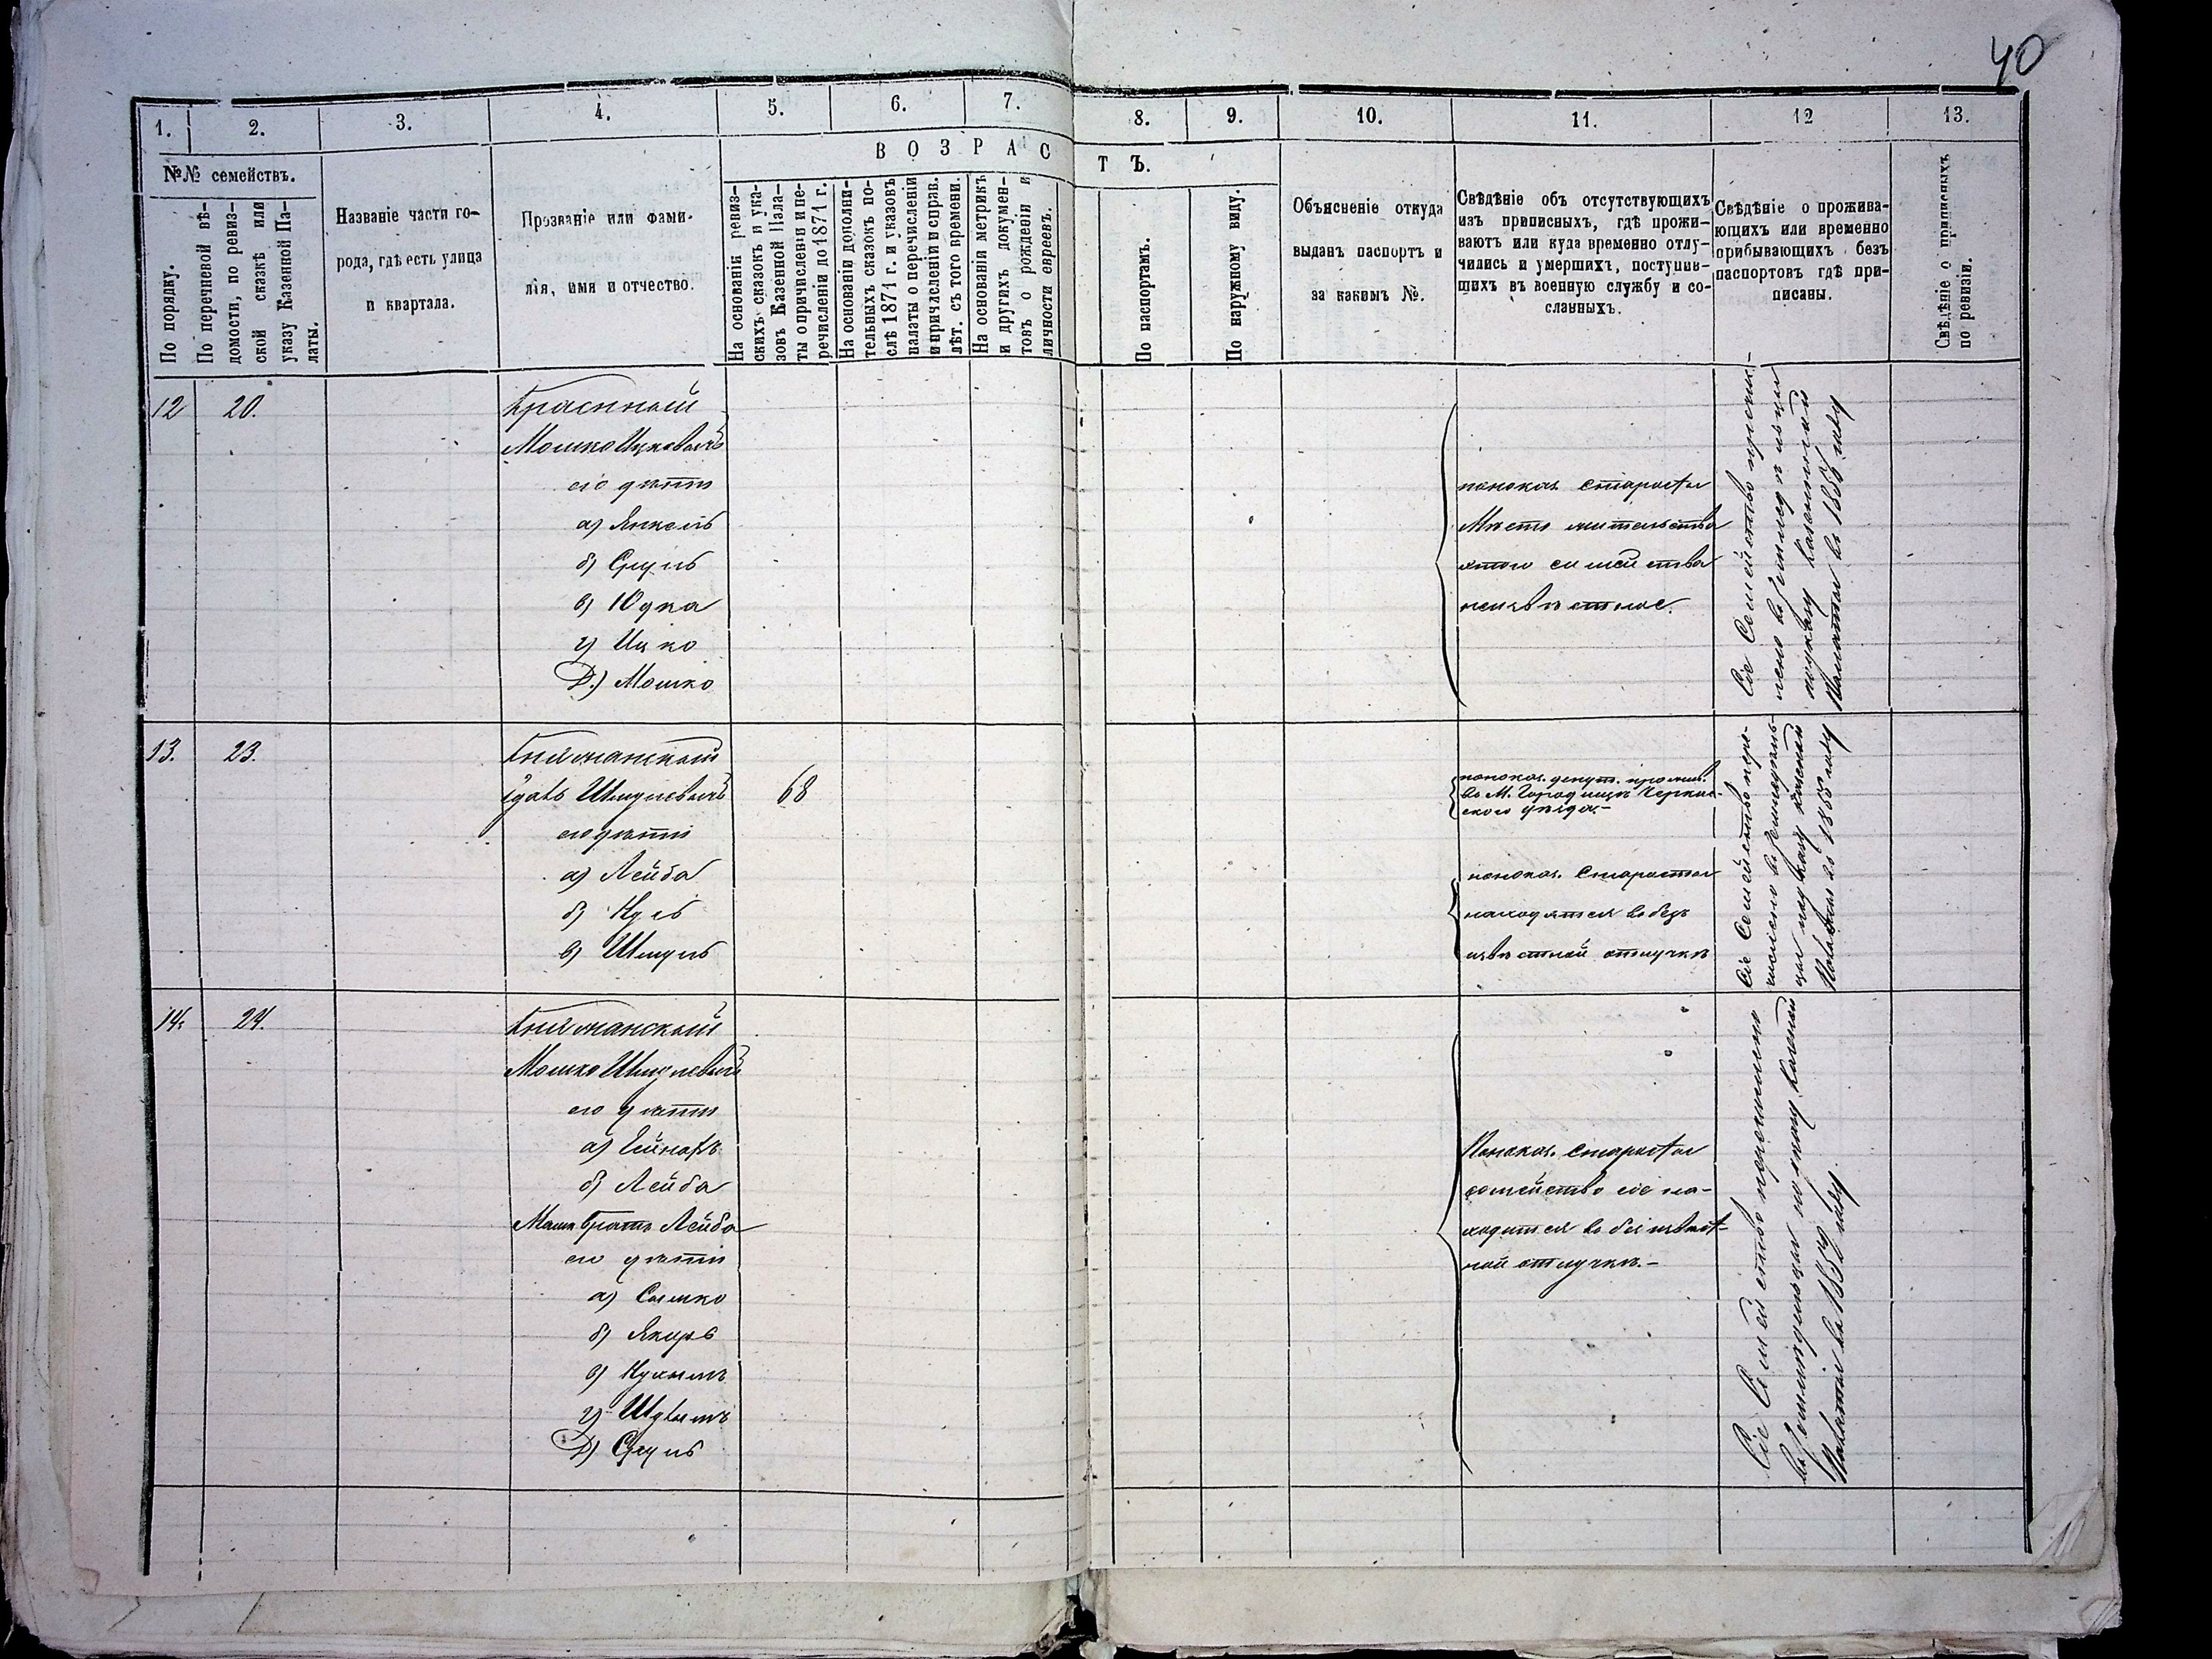 40
1. 2. 3. 4. 5. 6. 7. 8. 9. 10. 11. 12 13.
№№ семействъ.
По порядку.
По перечневой вѣ-
домости, по ревиз-
ской сказкѣ или
указу Казенной Па-
латы.
Названіе части го-
рода, гдѣ есть улица
и квартала.
Прозваніе или фами-
лія, имя и отчество.
ВОЗРАСТЪ.
На основаніи ревиз-
скихъ сказокъ и ука-
зовъ Казенной Пала-
ты о причисленіи и пе-
речисленіи до 1871 г.
На основаніи дополни-
тельныхъ сказокъ по-
слѣ 1871 г. и указовъ
палаты о перечисленіи
и причисленіи и справ.
лѣт. съ того времени.
На основаніи метрикъ
и другихъ докумен-
товъ о рожденіи и
личности евреевъ.
По паспортамъ.
По наружному виду.
Объясненіе откуда
выданъ паспортъ и
за какимъ №.
Свѣдѣніе объ отсутствующихъ
изъ приписныхъ, гдѣ прожи-
ваютъ или куда временно отлу-
чились и умершихъ, поступив-
шихъ въ военную службу и со-
сланныхъ.
Свѣдѣніе о прожива-
ющихъ или временно
прибывающихъ безъ
паспортовъ гдѣ при-
писаны.
Свѣдѣніе о приписныхъ
по ревизіи.
12 20. Красный
Мошко Ицковичъ
его дѣти
а) Янкель
б) Сруль
в) Юдка
г) Ицко
Д.) Мошко
по показ. старосты
Мѣсто жительства
этого семейства
неизвѣстное.
Сіе Семейство причи-
слено въ земледѣльцы
по указу Казенной
Палаты въ 185 году
13. 23. Княжанскій
Шмулевичъ 68
его дѣти
а) Лейба
б)
в) Шмуль
по показ. депут. прожив.
въ М. Городищѣ Черкас-
скаго уѣзда.-
по показ. Старосты
находятся въ безъ
извѣстной отлучкѣ
Сіе Семейство пере-
числено въ земледѣль-
цы по указу Казенной
Палаты въ 185 году
14. 24. Княжанскій
Мошко Шмулевичъ
его дѣти
а)
б) Лейба
Мошк. братъ Лейба
его дѣти
а)
б)
в) Нухимъ
г)
Д) Сруль
По показ. старосты
семейство сіе на-
ходится въ безъизвѣст-
ной отлучкѣ.-
Сіе Семейство перечислено
въ земледѣльцы по указу Казенной
Палаты въ 185 году.